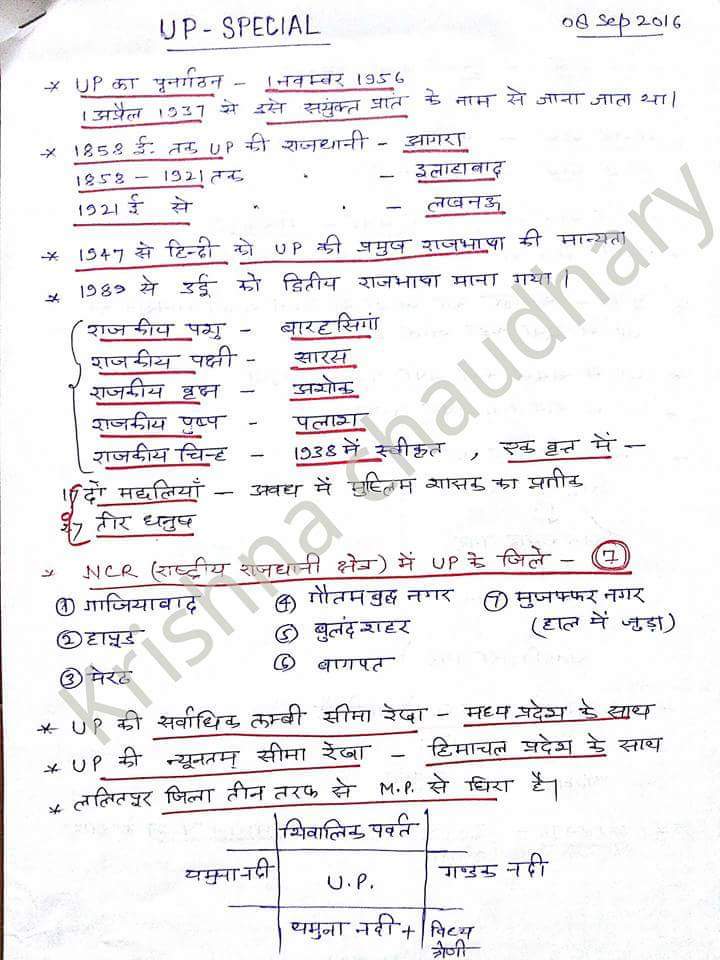 UP - SPECIAL
08 Sep 2016
* UP का पूनर्गठन - 1 नवम्बर 1956
1 अप्रैल 1937 से इसे सयुंक्त प्रांत के नाम से जाना जाता था।
* 1858 ई. तक UP की राजधानी - आगरा
1858 - 1921 तक " " - इलाहाबाद
1921 ई से " " - लखनऊ
* 1947 से हिन्दी को UP की प्रमुख राजभाषा की मान्यता
* 1989 से उर्दू को द्वितीय राजभाषा माना गया।
राजकीय पशु - बारहसिगां
राजकीय पक्षी - सारस
राजकीय वृक्ष - अशोक
राजकीय पुष्प - पलाश
राजकीय चिन्ह - 1938 में स्वीकृत , एक वृत में -
1) दो मछलियाँ - अवध में मुस्लिम शासक का प्रतीक
2) तीर धनुष
* NCR (राष्ट्रीय राजधानी क्षेत्र) में UP के जिले - 7
① गाजियाबाद ④ गौतम बुद्ध नगर ⑦ मुजफ्फर नगर
② हापुड ⑤ बुलंदशहर (हाल में जुड़ा)
③ मेरठ ⑥ बागपत
* UP की सर्वाधिक लम्बी सीमा रेखा - मध्य प्रदेश के साथ
* UP की न्यूनतम् सीमा रेखा - हिमाचल प्रदेश के साथ
* ललितपुर जिला तीन तरफ से M.P. से घिरा है।
शिवालिक पर्वत
यमुना नदी U.P. गण्डक नदी
यमुना नदी + विंध्य
श्रेणी
Krishna chaudhary